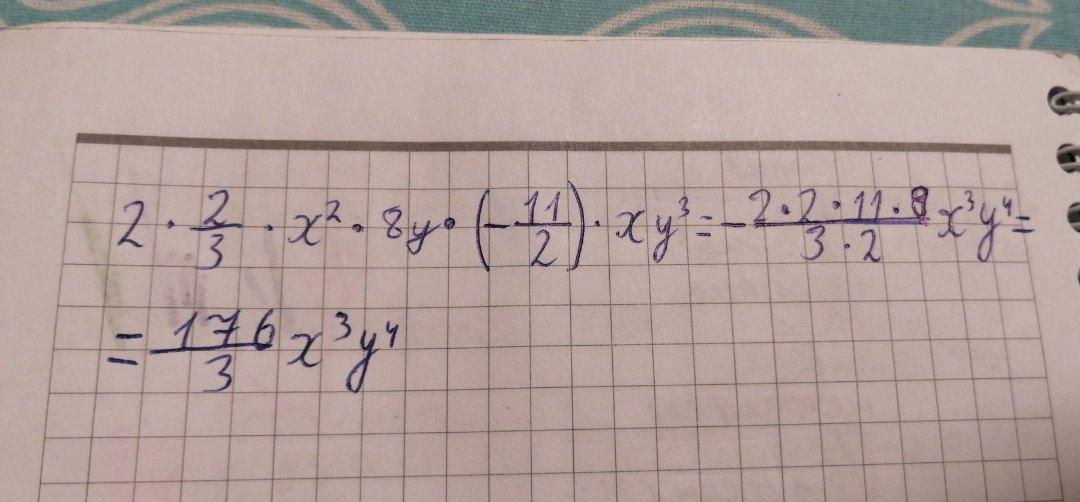 2 · 2/3 · x² · 8y · (-11/2) · xy³ = - 2·2·11·8/3·2 x³y⁴ =
= 176/3 x³y⁴